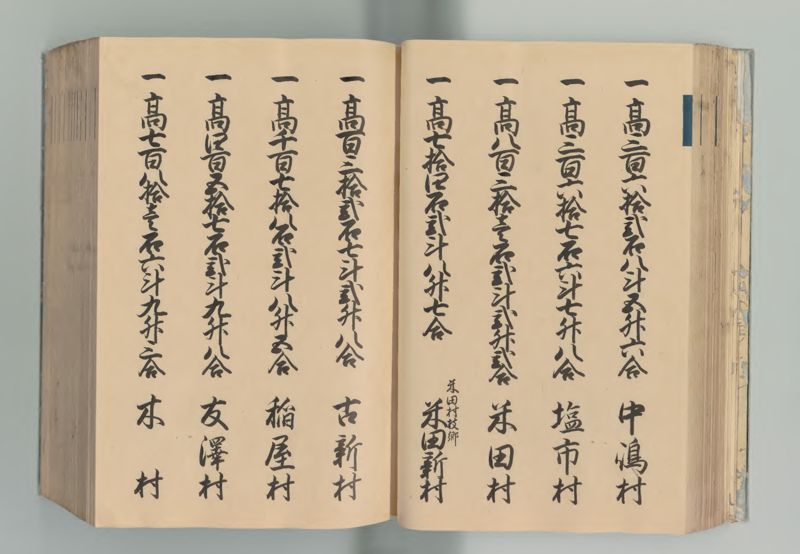 一高三百六拾弐石八斗五升六合 中嶋村
一高三百六拾七石六斗七升八合 塩市村
一高八百三拾壱石弐斗弐升弐合 米田村
一高七拾四石弐斗八升七合 米田村枝郷 米田新村
一高百三拾弐石七斗弐升八合 古新村
一高千百七拾八石弐斗八升五合 稲屋村
一高四百五拾七石弐斗九升八合 友澤村
一高七百八拾壱石六斗九升三合 木村